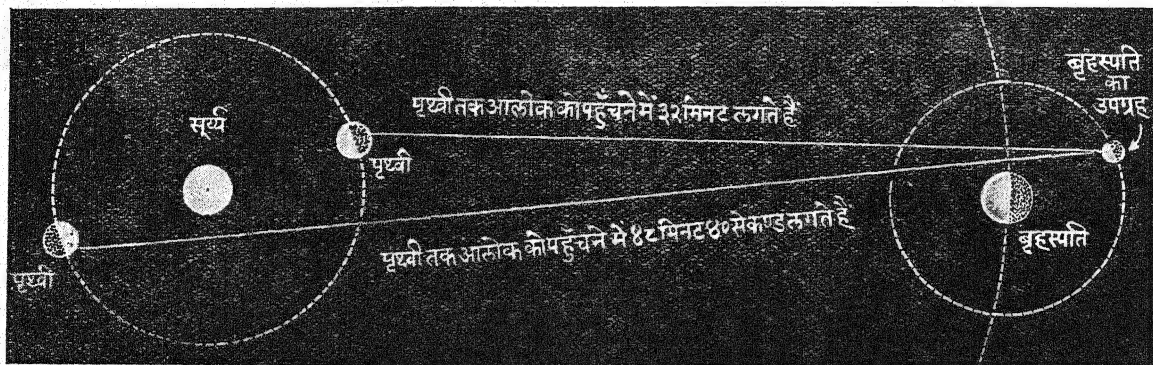 सूर्य्य
पृथ्वी
पृथ्वी
पृथ्वी तक आलोक को पहुँचने में ३२ मिनट लगते हैं
पृथ्वी तक आलोक को पहुँचने में ४८ मिनट ४० सेकण्ड लगते हैं
बृहस्पति
का
उपग्रह
बृहस्पति